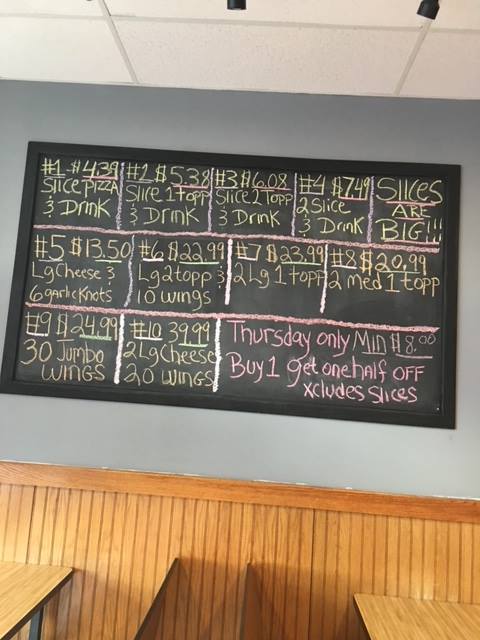 #1 $4.39
Slice PIZZA
& Drink
#2 $5.38
Slice 1 Topp
& Drink
#3 $6.08
Slice 2 Topp
& Drink
#4 $7.49
2 Slice
& Drink
Slices
ARE
BIG!!!
#5 $13.50
Lg Cheese &
6 garlic Knots
#6 $22.99
Lg 2 topp &
10 wings
#7 $23.99
2 Lg 1 topp
#8 $20.99
2 med 1 topp
#9 $24.99
30 Jumbo
WINGS
#10 39.99
2 Lg Cheese
20 WINGS
Thursday only Min $8.00
Buy 1 get one half OFF
xcludes Slices